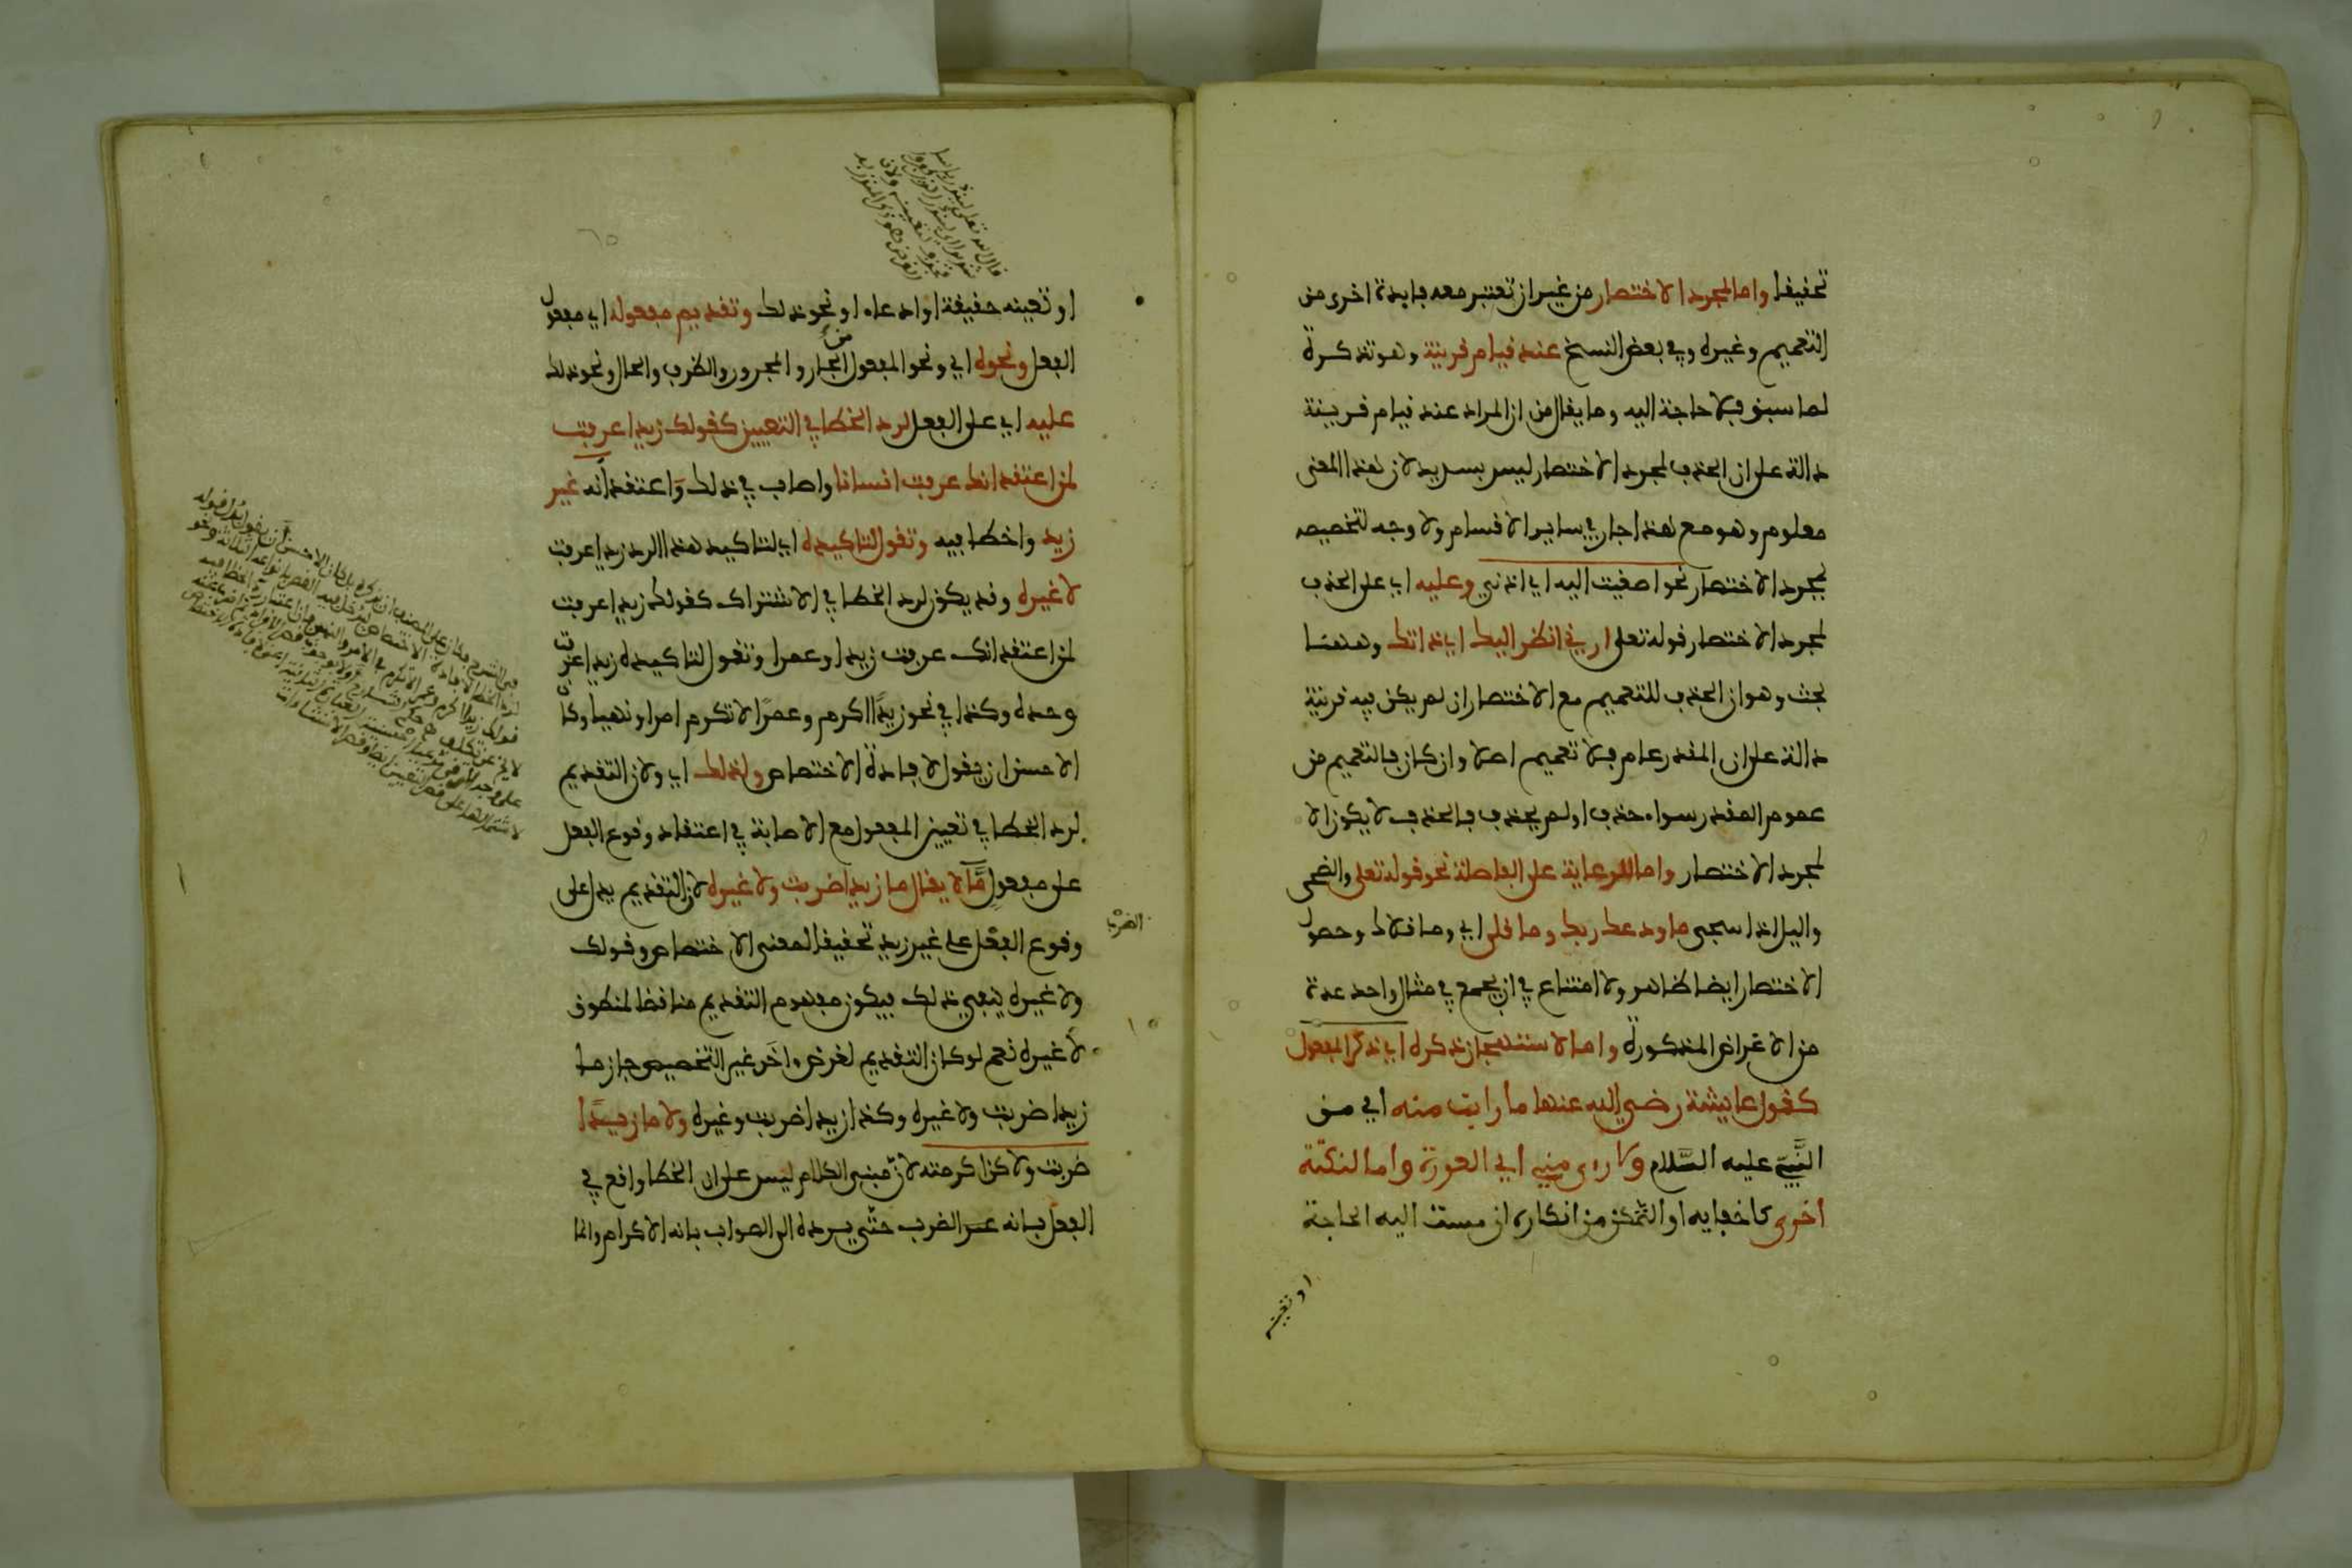 تحقيقا واما لمجرد الاختصار من غير ان تعتبر معه فايدة اخرى من
التعميم وغيره وفي بعض النسخ عند قيام قرينة وهو تذكرة
لما سبق فلا حاجة اليه وما يقال من ان المراد عند قيام قرينة
دالة على ان الحذف لمجرد الاختصار ليس بسديد لان هذا المعنى
معلوم وهو مع هذا جار في ساير الاقسام ولا وجه لتخصيصه
بمجرد الاختصار نحو اصغيت اليه اي اذني وعليه اي على الحذف
لمجرد الاختصار قوله تعلى ارني انظر اليك اي ذاتك وههنا
بحث وهو ان الحذف للتعميم مع الاختصار ان لم يكن فيه قرينة
دالة على ان المقدر عام فلا تعميم اصلا وان كان فالتعميم من
عموم المقدر سواء حذف او لم يحذف فالحذف لا يكون الا
لمجرد الاختصار واما للرعاية على الفاصلة نحو قوله تعلى والضحى
واليل اذا سجى ما ودعك ربك وما قلى اي وما قلاك وحصول
الاختصار ايضا ظاهر ولا امتناع في ان يجمع في مثال واحد عدة
من الاغراض المذكورة واما لاستهجان ذكره اي ذكر المفعول
كقول عايشة رضي الله عنها ما رايت منه اي من
النبي عليه السلام ولا راى مني اي العورة واما لنكتة
اخرى كاخفايه او التمكن من انكاره ان مست اليه الحاجة
او تعينه
او تعينه حقيقة او ادعاء او نحو ذلك وتقديم مفعوله اي مفعول
الفعل ونحوه اي ونحو المفعول من الجار و المجرور والظرف والحال ونحو ذلك
عليه اي على الفعل لرد الخطا في التعيين كقولك زيدا عرفت
لمن اعتقد انك عرفت انسانا واصاب في ذلك واعتقد انه غير
زيد واخطا فيه وتقول لتاكيده اي لتاكيد هذا الرد زيدا عرفت
لا غيره وقد يكون لرد الخطا في الاشتراك كقولك زيدا عرفت
لمن اعتقد انك عرفت زيدا وعمرا وتقول لتاكيده زيدا عرفت
وحده وكذا في نحو زيدا اكرم وعمرا لا تكرم امرا ونهيا وكان
الاحسن ان يقول لافادة الاختصاص ولذلك اي ولان التقديم
لرد الخطا في تعيين المفعول مع الاصابة في اعتقاد وقوع الفعل
على مفعول ما لا يقال ما زيدا ضربت ولا غيره لان التقديم يدل على
وقوع الفعل على غير زيد تحقيقا لمعنى الاختصاص وقولك
الضرب
ولا غيره ينفي ذلك فيكون مفهوم التقديم مناقضا لمنطوق
لا غيره نعم لو كان التقديم لغرض اخر غير التخصيص جاز ما
زيدا ضربت ولا غيره وكذا زيدا ضربت وغيره ولا ما زيدا
ضربت ولا كن اكرمته لان مبنى الكلام ليس على ان الخطا واقع في
الفعل بانه عير الضرب حتى يرده الى الصواب بانه الاكرام وانما